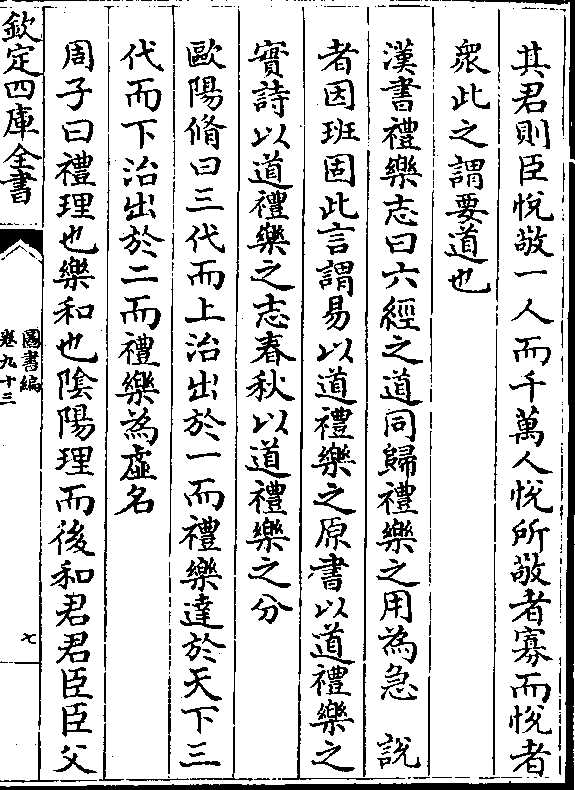 其君則臣悅敬一人而千萬人悅所敬者寡而悅者
衆此之謂要道也
漢書禮樂志曰六經之道同歸禮樂之用為急　說
者因班固此言謂易以道禮樂之原書以道禮樂之
實詩以道禮樂之志春秋以道禮樂之分
歐陽脩曰三代而上治出於一而禮樂達於天下三
代而下治出於二而禮樂為虛名
周子曰禮理也樂和也陰陽理而後和君君臣臣父
欽定四庫全書
圖書編
卷九十三
七